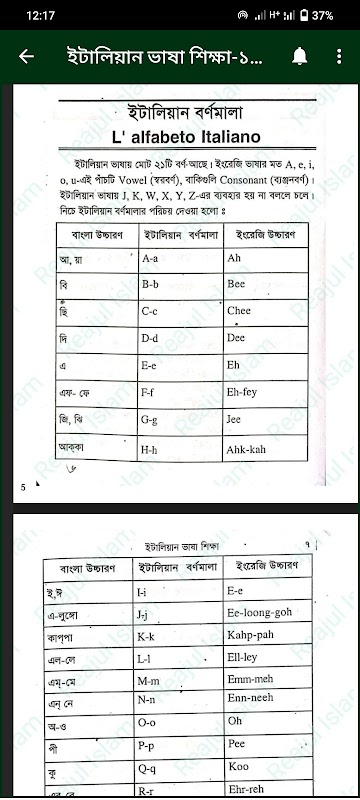 12:17
H+
37%
ইটালিয়ান ভাষা শিক্ষা-১...
ইটালিয়ান বর্ণমালা
L' alfabeto Italiano
ইটালিয়ান ভাষায় মোট ২১টি বর্ণ আছে। ইংরেজি ভাষার মত A, e, i,
o, u-এই পাঁচটি Vowel (স্বরবর্ণ), বাকিগুলি Consonant (ব্যঞ্জনবর্ণ)।
ইটালিয়ান ভাষায় J, K, W, X, Y, Z-এর ব্যবহার হয় না বললে চলে।
নিচে ইটালিয়ান বর্ণমালার পরিচয় দেওয়া হলো ঃ
বাংলা উচ্চারণ ইটালিয়ান বর্ণমালা ইংরেজি উচ্চারণ
আ, য়া A-a Ah
বি B-b Bee
ছি C-c Chee
দি D-d Dee
এ E-e Eh
এফ- ফে F-f Eh-fey
জি, ঝি G-g Jee
আক্কা H-h Ahk-kah
৬
5
ইটালিয়ান ভাষা শিক্ষা ৭
বাংলা উচ্চারণ ইটালিয়ান বর্ণমালা ইংরেজি উচ্চারণ
ই,ঈ I-i E-e
এ-লুঙ্গো J-j Ee-loong-goh
কাপ্পা K-k Kahp-pah
এল-লে L-l Ell-ley
এম্-মে M-m Emm-meh
এন্ নে N-n Enn-neeh
অ-ও O-o Oh
পী P-p Pee
কু Q-q Koo
R-r Ehr-reh
Reajul Islam